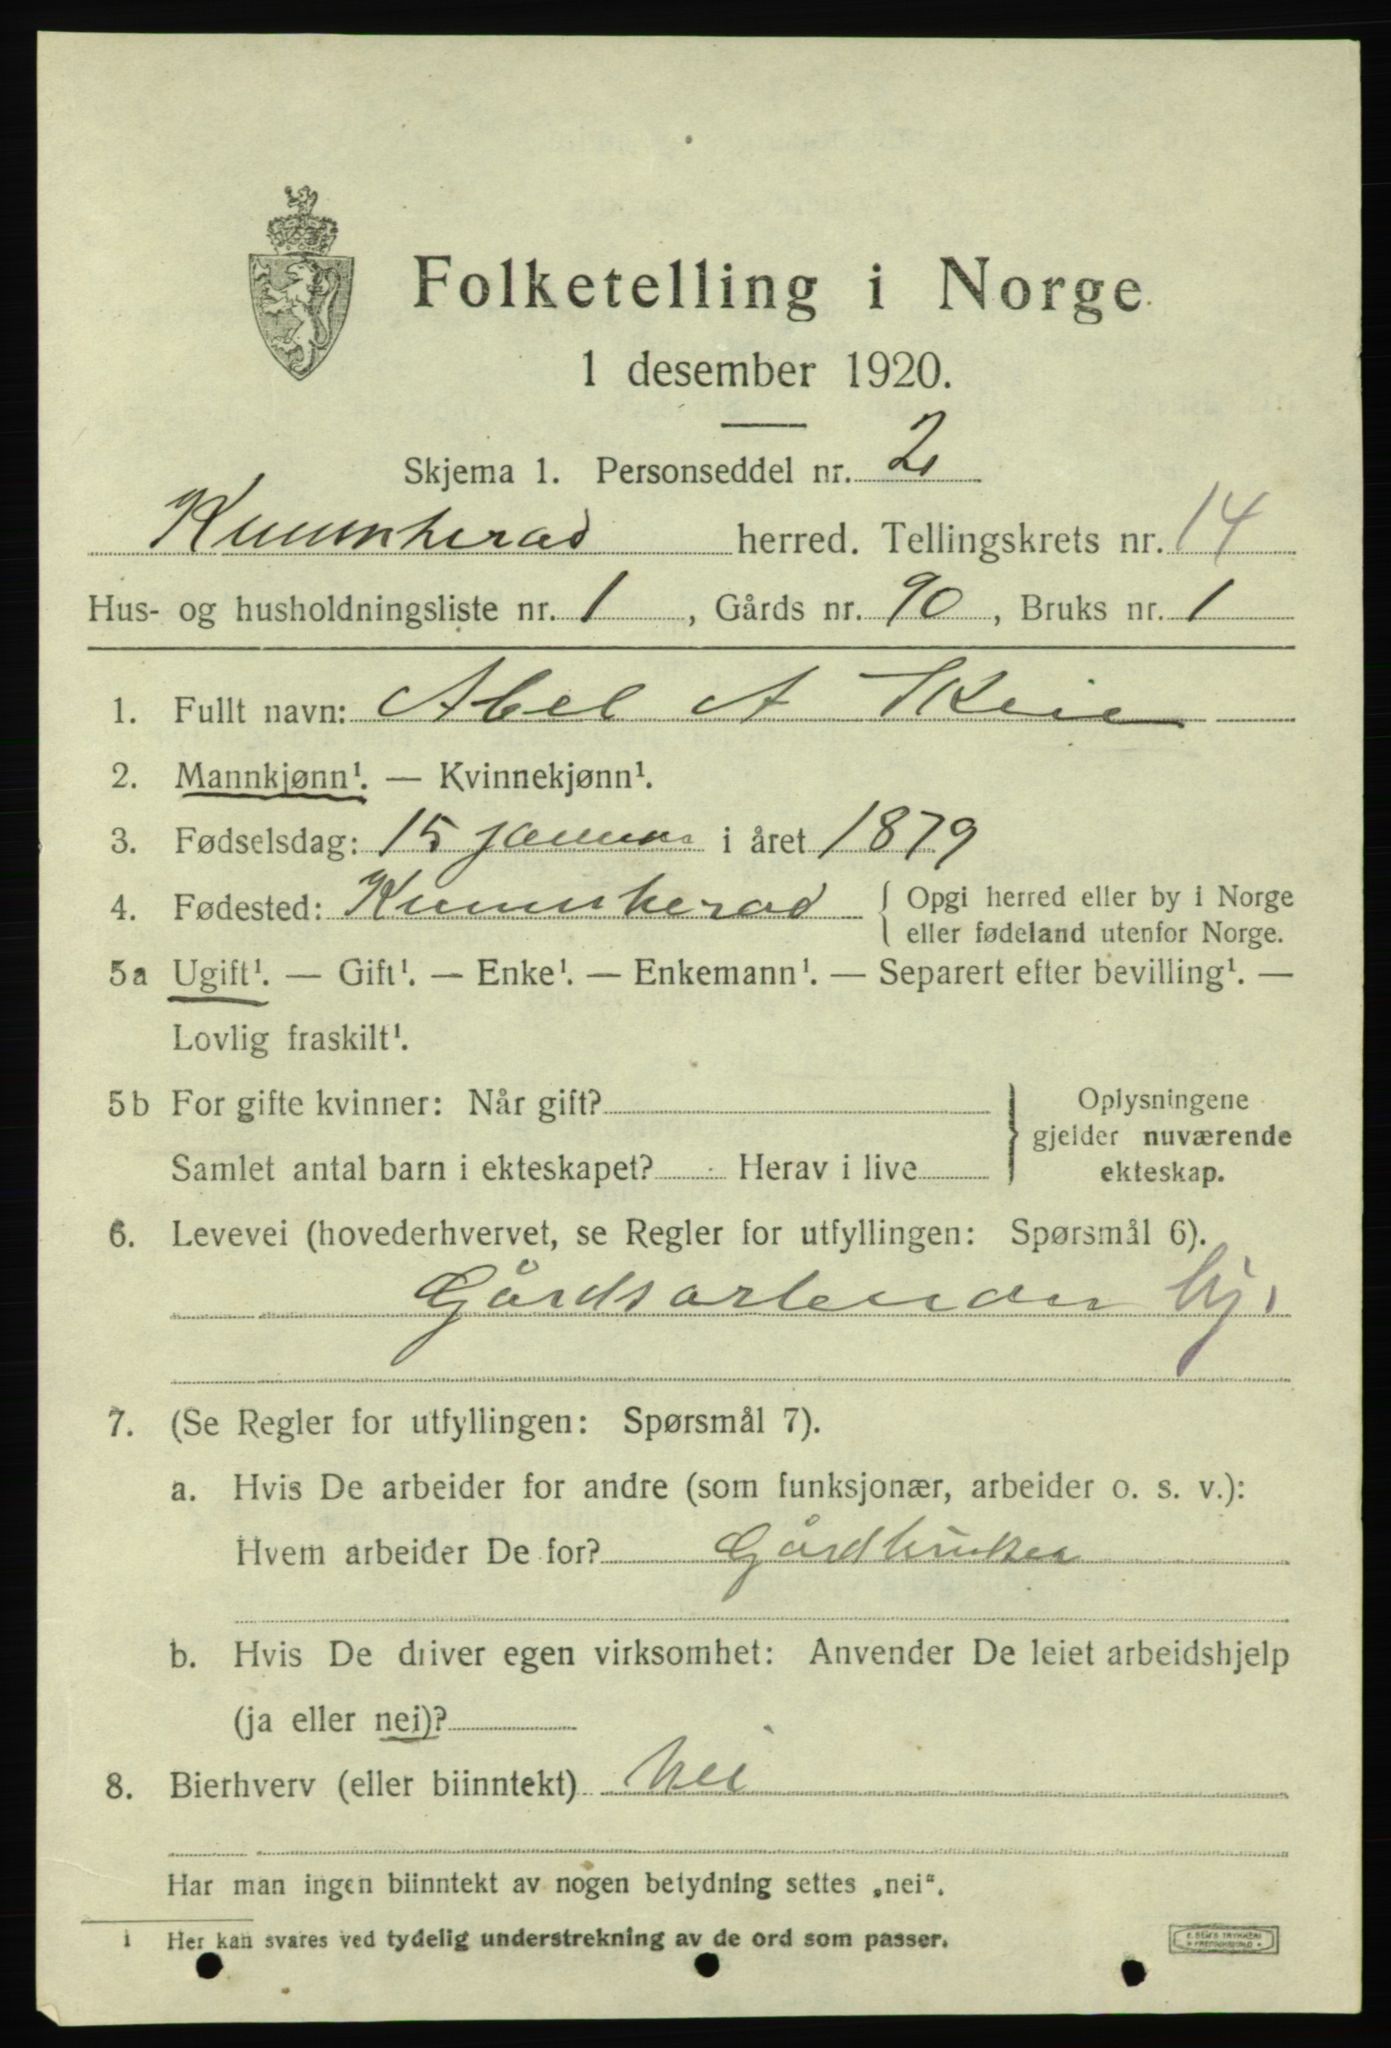 Folketelling i Norge
1 desember 1920.
Skjema 1. Personseddel nr. 2
Kvinnherad herred. Tellingskrets nr. 14
Hus- og husholdningsliste nr. 1, Gårds nr. 90, Bruks nr. 1
1. Fullt navn: Abel A Skeie
2. Mannkjønn¹. — Kvinnekjønn¹.
3. Fødselsdag: 15 januar i året 1879
4. Fødested: Kvinnherad { Opgi herred eller by i Norge
eller fødeland utenfor Norge.
5a Ugift¹. — Gift¹. — Enke¹. — Enkemann¹. — Separert efter bevilling¹. —
Lovlig fraskilt¹.
5b For gifte kvinner: Når gift?
Samlet antal barn i ekteskapet? Herav i live
} Oplysningene
gjelder nuværende
ekteskap.
6. Levevei (hovederhvervet, se Regler for utfyllingen: Spørsmål 6).
Gårdsarbeider
7. (Se Regler for utfyllingen: Spørsmål 7).
a. Hvis De arbeider for andre (som funksjonær, arbeider o. s. v.):
Hvem arbeider De for? Gårdbruker
b. Hvis De driver egen virksomhet: Anvender De leiet arbeidshjelp
(ja eller nei)?
8. Bierhverv (eller biinntekt) Nei
Har man ingen biinntekt av nogen betydning settes „nei“.
1 Her kan svares ved tydelig understrekning av de ord som passer.